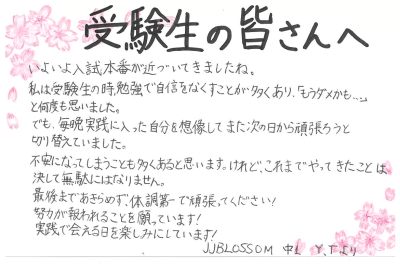 受験生の皆さんへ
いよいよ入試本番が近づいてきましたね。
私は受験生の時、勉強で自信をなくすことが多くあり、「もうダメかも…」
と何度も思いました。
でも、毎晩実践に入った自分を想像してまた次の日から頑張ろうと
切り替えていました。
不安になってしまうことも多くあると思います。けれど、これまでやってきたことは
決して無駄にはなりません。
最後まであきらめず、体調第一で頑張ってください!
努力が報われることを願っています!
実践で会える日を楽しみにしています!
JJBLOSSOM 中1 Y.Tより